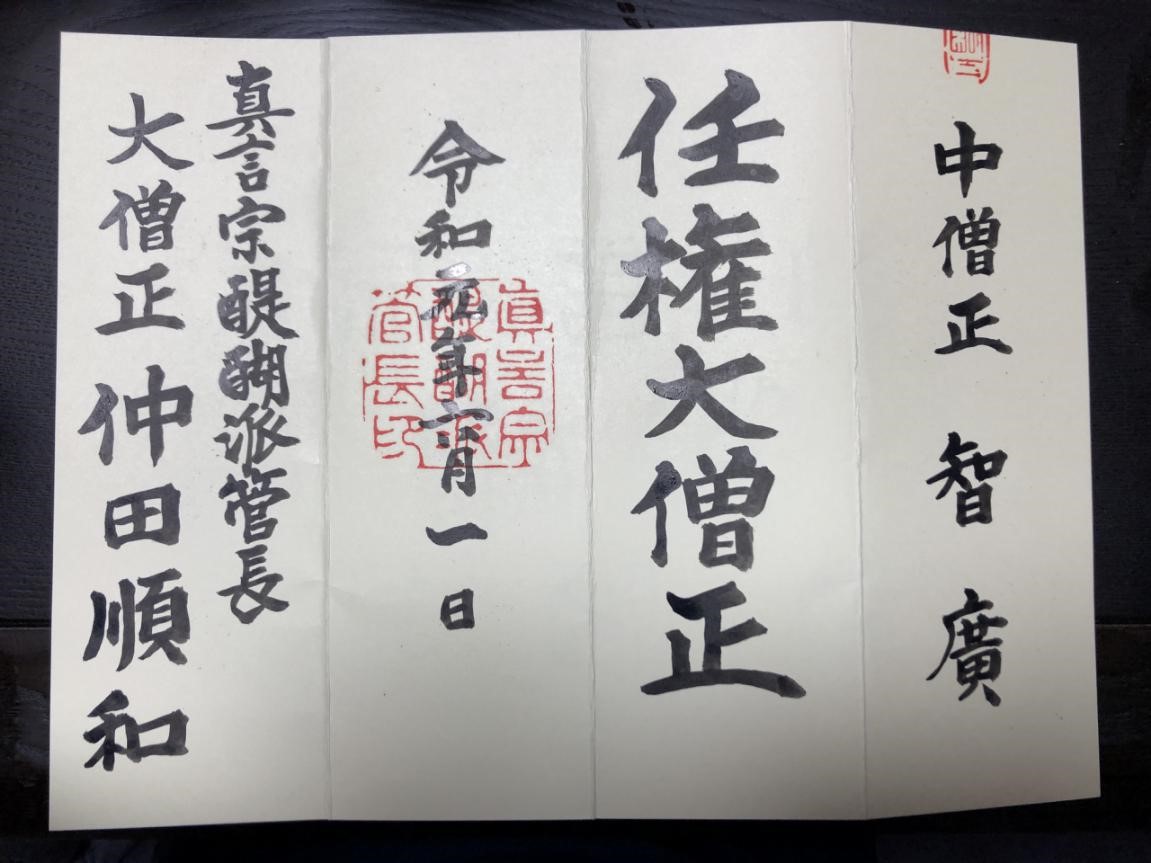 中僧正 智廣
任権大僧正
令和元年六月一日
真言宗醍醐派管長印
真言宗醍醐派管長
大僧正 仲田順和